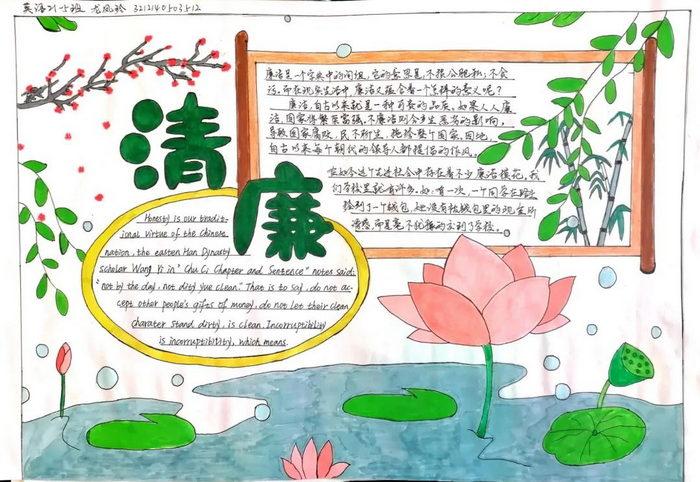 英语21-5班 龙凤玲 3212140503512
清廉
廉洁是一个字典中的词组,它的意思是,不损公肥私;不贪
污,而在现实生活中,廉洁又蕴含着一个怎样的意义呢?
廉洁,自古以来就是一种可贵的品质,如果人人廉
洁,国家将繁荣富强,不廉洁则会产生恶劣的影响,
导致国家腐败,民不聊生,拖垮整个国家,因此,
自古以来每个朝代的领导人都提倡的作风。
在如今这个先进社会中存在着不少廉洁模范,我
们学校里就有许多。如:有一次,一个同学在路上
捡到了一个钱包,她没有被钱包里的现金所
诱惑,而是毫不犹豫的交到了学校。
Honesty is our tradit-
ional virtue of the chinese
nation, the eastern Han Dynasty
scholar Wang Yi in "Chu Ci Chapter and Sentence" notes said:
"not by the day, not dirty yue clean." That is to say, do not ac-
cept other people's gifts of money, do not let their clean
charater stand dirty, is clean. Incorruptibility
is incorruptibility, which means.